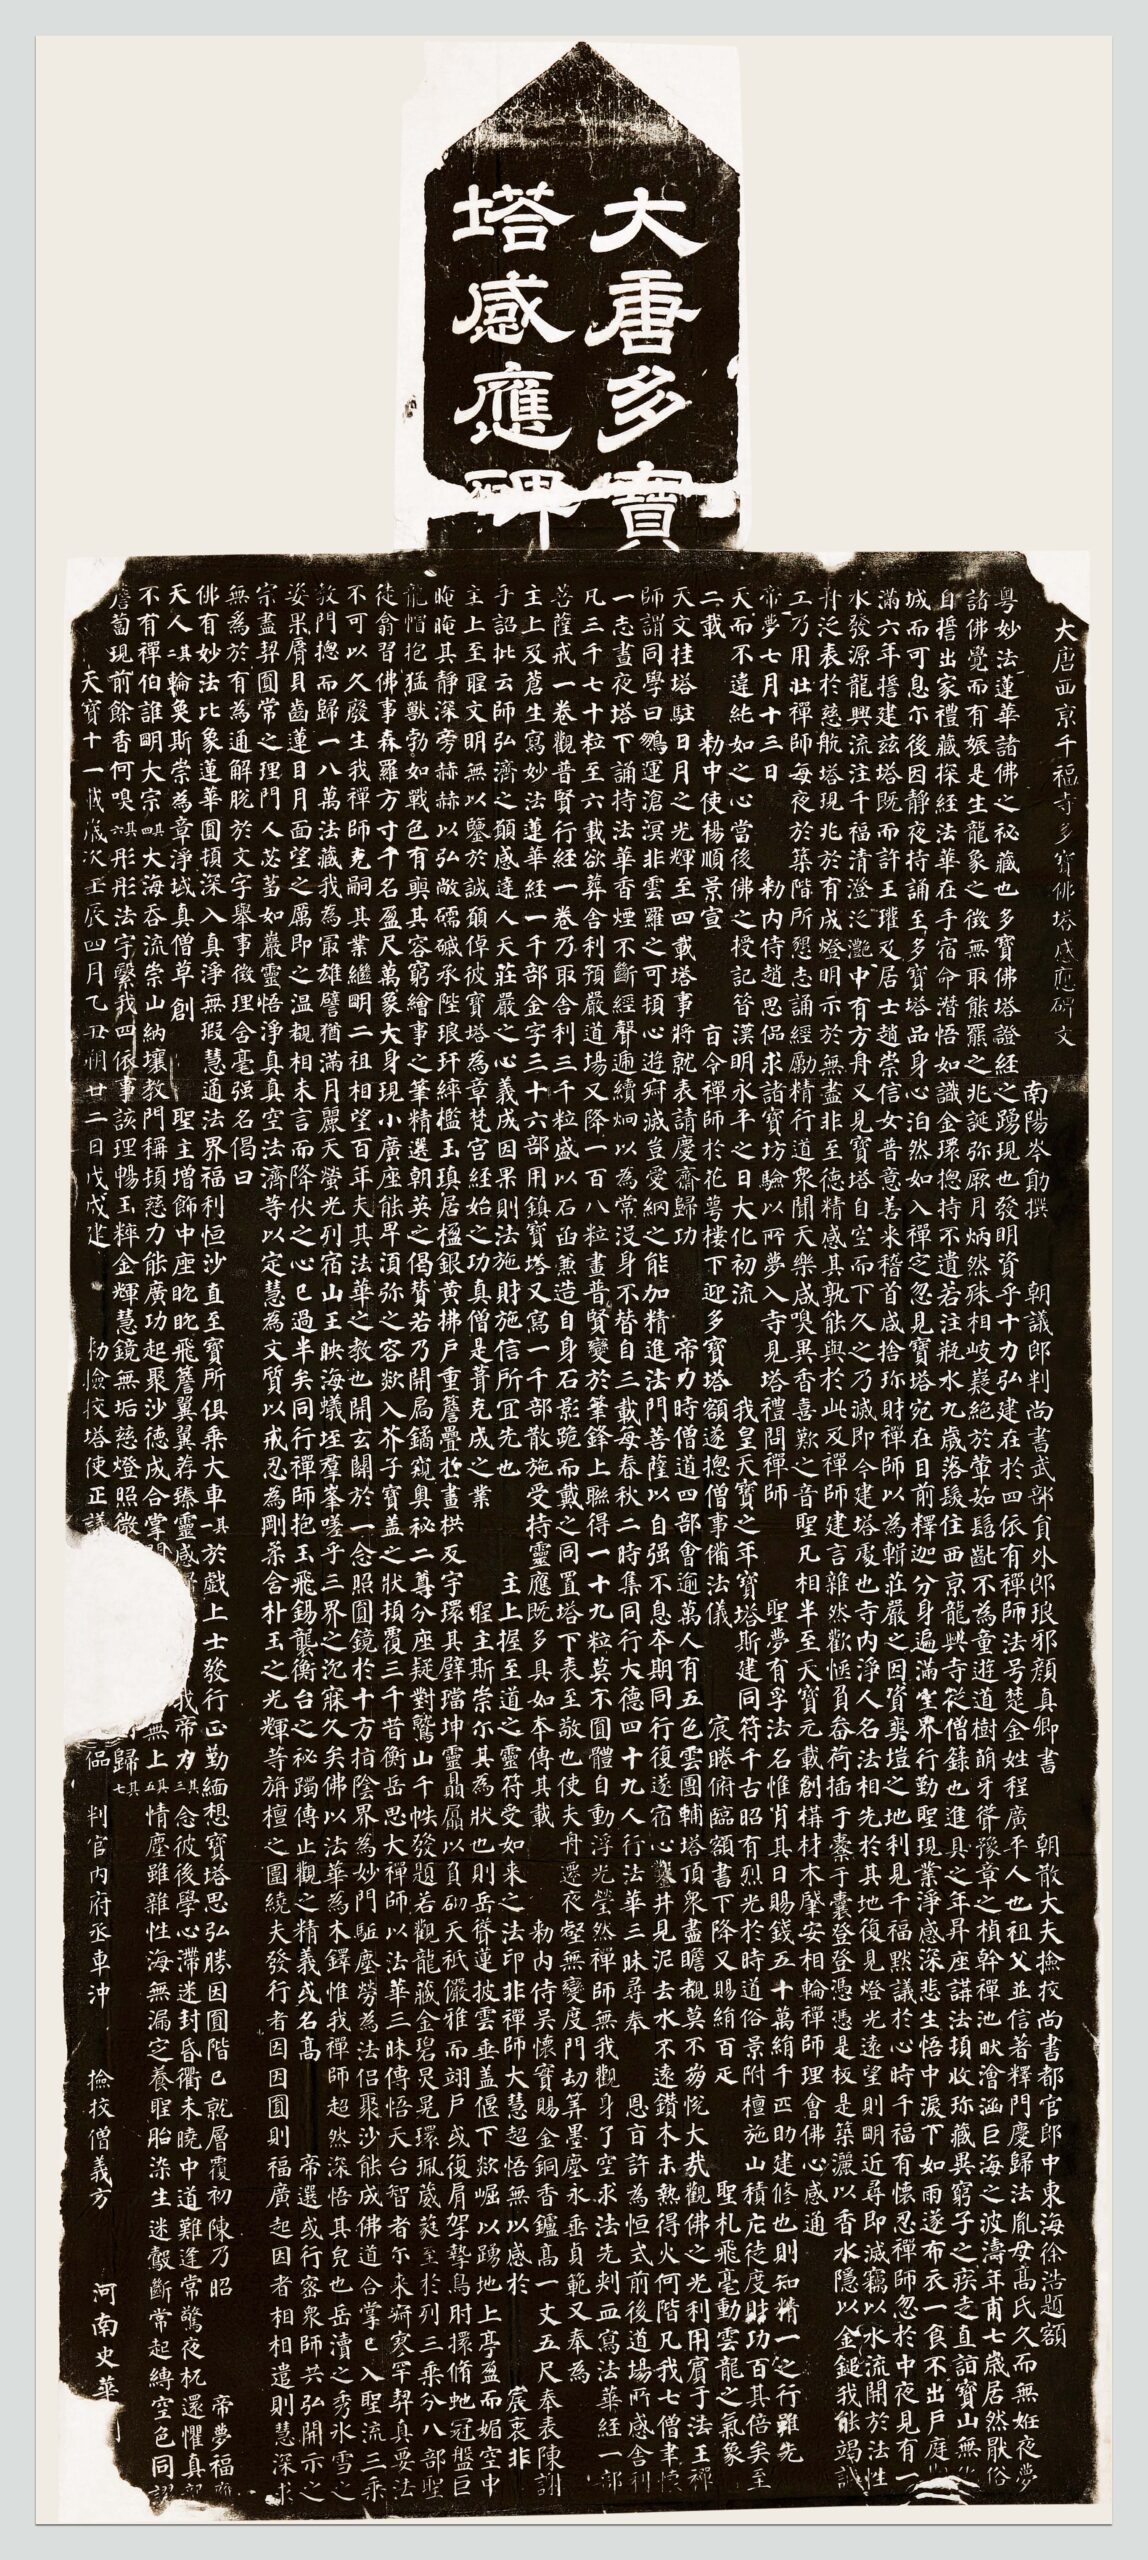 大唐多寶
塔感應碑
大唐西京千福寺多寶佛塔感應碑文 南陽岑勛撰 朝議郎判尚書武部員外郎琅邪顏真卿書 朝散大夫撿挍尚書都官郎中東海徐浩題額
粵妙法蓮華諸佛之祕藏也多寶佛塔證經之踴現也發明資乎十力弘建在於四依有禪師法号楚金姓程廣平人也祖父並信著釋門慶歸法胤母高氏久而無姙夜夢
諸佛覺而有娠是生龍象之徵無取熊羆之兆誕弥厥月炳然殊相岐嶷絕於葷茹髫齔不為童遊道樹萌牙聳豫章之楨幹禪池畎澮涵巨海之波濤年甫七歲居然厭俗
自誓出家禮藏探經法華在手宿命潛悟如識金環揔持不遺若注瓶水九歲落髮住西京龍興寺從僧籙也進具之年昇座講法頓收珎藏異窮子之疾走直詣寶山無化
城而可息尒後因靜夜持誦至多寶塔品身心泊然如入禪定忽見寶塔宛在目前釋迦分身遍滿空界行勤聖現業淨感深悲生悟中淚下如雨遂布衣一食不出戶庭期
滿六年誓建茲塔既而許王瓘及居士趙崇信女普意善來稽首咸捨珎財禪師以為輯莊嚴之因資爽塏之地利見千福默議於心時千福有懷忍禪師忽於中夜見有一
水發源龍興流注千福清澄泛灧中有方舟又見寶塔自空而下久之乃滅即今建塔處也寺內淨人名法相先於其地復見燈光遠望則明近尋即滅竊以水流開於法性
舟泛表於慈航塔現兆於有成燈明示於無盡非至德精感其孰能與於此及禪師建言雜然歡愜負畚荷插于橐于囊登登憑憑是板是築灑以香水隱以金鎚我能竭誠
工乃用壯禪師每夜於築階所懇志誦經勵精行道衆聞天樂咸嗅異香喜歎之音聖凡相半至天寶元載創構材木肇安相輪禪師理會佛心感通
帝夢七月十三日 勑內侍趙思偘求諸寶坊驗以所夢入寺見塔禮問禪師 聖夢有孚法名惟肖其日賜錢五十萬絹千匹助建修也則知精一之行雖先
天而不違純如之心當後佛之授記昔漢明永平之日大化初流 我皇天寶之年寶塔斯建同符千古昭有烈光於時道俗景附檀施山積庀徒度財功百其倍矣至
二載 勑中使楊順景宣 旨令禪師於花萼樓下迎多寶塔額遂揔僧事備法儀 宸睠俯臨額書下降又賜絹百疋 聖札飛毫動雲龍之氣象
天文挂塔駐日月之光輝至四載塔事將就表請慶齋歸功 帝力時僧道四部會逾萬人有五色雲團輔塔頂衆盡瞻覩莫不崩悅大哉觀佛之光利用賓于法王禪
師謂同學曰鵬運滄溟非雲羅之可頓心遊寂滅豈愛網之能加精進法門菩薩以自強不息本期同行復遂宿心鑿井見泥去水不遠鑽木未熱得火何階凡我七僧聿懷
一志晝夜塔下誦持法華香煙不斷經聲遞續炯以為常沒身不替自三載每春秋二時集同行大德四十九人行法華三昧尋奉 恩旨許為恒式前後道場所感舍利
凡三千七十粒至六載欲葬舍利預嚴道場又降一百八粒畫普賢變於筆鋒上聯得一十九粒莫不圓體自動浮光瑩然禪師無我觀身了空求法先刺血寫法華經一部
菩薩戒一卷觀普賢行經一卷乃取舍利三千粒盛以石函兼造自身石影跪而戴之同置塔下表至敬也使夫舟遷夜壑無變度門刧筭墨塵永垂貞範又奉為
主上及蒼生寫妙法蓮華經一千部金字三十六部用鎮寶塔又寫一千部散施受持靈應既多具如本傳其載 勑內侍吳懷實賜金銅香鑪高一丈五尺奉表陳謝
手詔批云師弘濟之願感達人天莊嚴之心義成因果則法施財施信所宜先也 主上握至道之靈符受如來之法印非禪師大慧超悟無以感於 宸衷非
主上至聖文明無以鑒於誠願倬彼寶塔為章梵宮經始之功真僧是葺克成之業 聖主斯崇尒其為狀也則岳聳蓮披雲垂蓋偃下欻崛以踴地上亭盈而媚空中
晻晻其靜深旁赫赫以弘敞碝磩承陛琅玕綷檻玉瑱居楹銀黃拂戶重簷疊於畫栱反宇環其璧璫坤靈贔屭以負砌天祇儼雅而翊戶或復肩挐摯鳥肘擐脩虵冠盤巨
龍帽抱猛獸勃如戰色有奭其容窮繪事之筆精選朝英之偈贊若乃開扃鐍窺奧祕二尊分座疑對鷲山千帙發題若觀龍藏金碧炅晃環珮葳蕤至於列三乘分八部聖
徒翕習佛事森羅方寸千名盈尺萬象大身現小廣座能卑須弥之容欻入芥子寶蓋之狀頓覆三千昔衡岳思大禪師以法華三昧傳悟天台智者尒來寂寥罕契真要法
不可以久廢生我禪師克嗣其業繼明二祖相望百年夫其法華之教也開玄關於一念照圓鏡於十方指陰界為妙門駈塵勞為法侶聚沙能成佛道合掌已入聖流三乘
教門揔而歸一八萬法藏我為最雄譬猶滿月麗天螢光列宿山王映海蟻垤羣峯嗟乎三界之沉寐久矣佛以法華為木鐸惟我禪師超然深悟其皃也岳瀆之秀冰雪之
姿果脣貝齒蓮目月面望之厲即之溫覩相未言而降伏之心已過半矣同行禪師抱玉飛錫襲衡台之祕躅傳止觀之精義或名高 帝選或行密衆師共弘開示之
宗盡契圓常之理門人苾蒭如巖靈悟淨真真空法濟等以定慧為文質以戒忍為剛柔含朴玉之光輝等旃檀之圍繞夫發行者因因圓則福廣起因者相相遣則慧深求
無為於有為通解脫於文字舉事徵理含毫強名偈曰
佛有妙法比象蓮華圓頓深入真淨無瑕慧通法界福利恒沙直至寶所俱乘大車其一於戲上士發行正勤緬想寶塔思弘勝因圓階已就層覆初陳乃昭 帝夢福應
天人其二輪奐斯崇為章淨域真僧草創 聖主增飾中座眈眈飛簷翼翼荐臻靈感 我帝力其三念彼後學心滯迷封昏衢未曉中道難逢常驚夜杌還懼真龍
不有禪伯誰明大宗其四大海吞流崇山納壤教門稱頓慈力能廣功起聚沙德成合掌 無上其五情塵雖雜性海無漏定養聖胎染生迷鷇斷常起縛空色同謬
薝蔔現前餘香何嗅其六彤彤法宇繄我四依事該理暢玉粹金輝慧鏡無垢慈燈照微 歸其七
天寶十一載歲次壬辰四月乙丑朔廿二日戊戌建 勑撿挍塔使正議 品 判官內府丞車沖 撿挍僧義方 河南史華